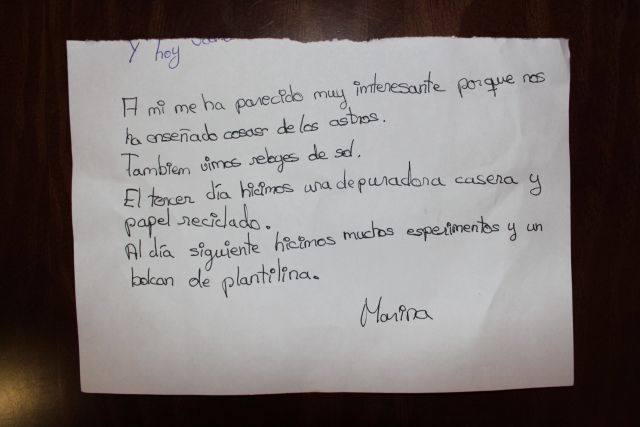 Y hoy
A mi me ha parecido muy interesante porque nos
ha enseñado cosas de los astros.
Tambiem vimos relojes de sol.
El tercer día hicimos una depuradora casera y
papel reciclado.
Al día siguiente hicimos muchos esperimentos y un
bolcan de plantilina.
Marina